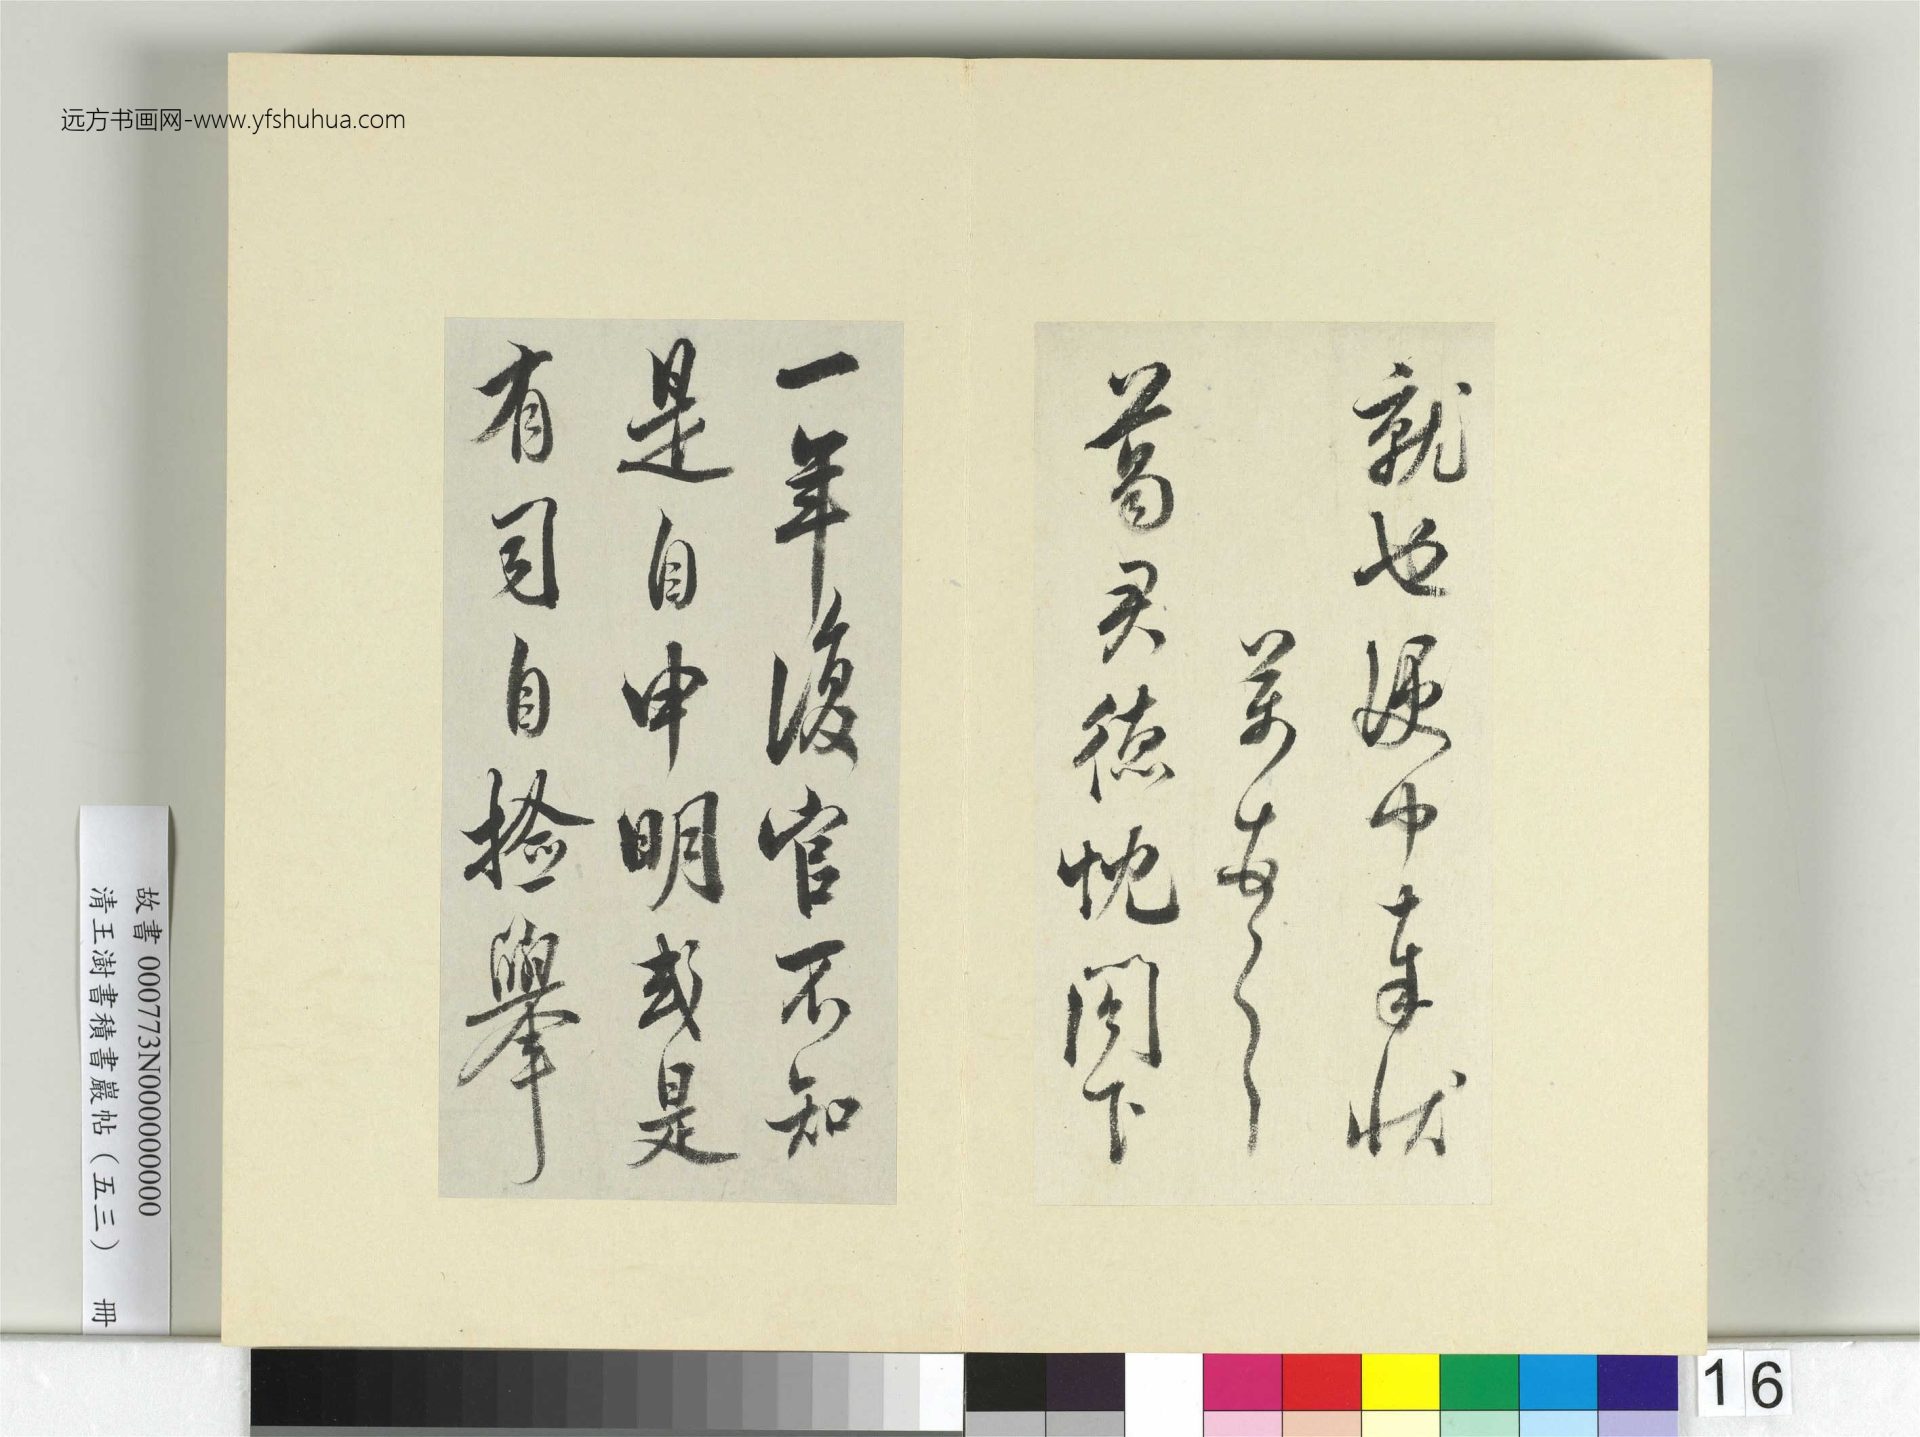 远方书画网-www.yfshuhua.com
就也便中奉状
葛君德忱閣下
一年復官不知
是自申明或是
有司自撿舉
故書 000773N000000000
清王澍書積書巖帖(五三) 冊
16